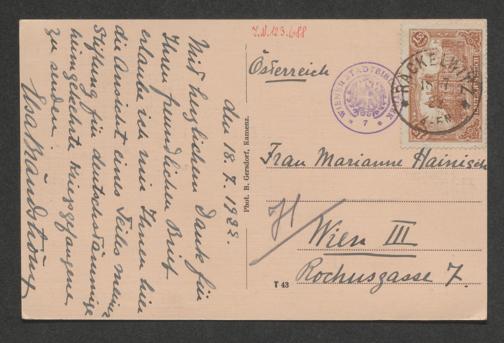 I.N. 123.688
den 18.7.1923.
Mit herzlichem Dank für
Ihren freundlichen Brief
erlaube ich mir Ihnen hier
die Ansicht eines Teiles meiner
Stiftung für deutschstämmige
heimgekehrte Kriegsgefangene
zu senden.
Elsa Brändström
Phot. B. Gersdorf, Kamenz.
Österreich
WIENER STADTBIBLIOTHEK
* 7 *
RACKELWITZ
Frau Marianne Hainisch
Wien III
Rochusgasse 7.
T 43